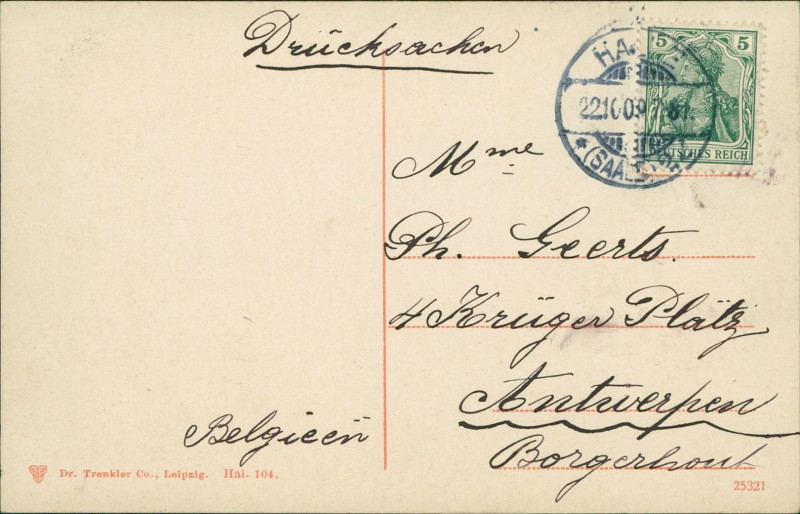 Drücksachen
5 5
HA
22.10.09
(SAALE)
DEUTSCHES REICH
Mme
Ph. Geerts.
4 Krüger Plätz
Antwerpen
Borgerhout
Belgieen
Dr. Trenkler Co., Leipzig. Hal. 104.
25321